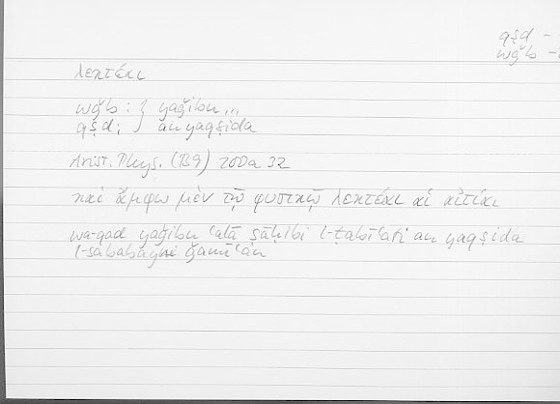 qṣd –
wǧb –
λεκτέαι
wǧb : } yaǧibu ...
qṣd : } an yaqṣida
Arist. Phys. (B9) 200a 32
καὶ ἄμφω μὲν τῷ φυσικῷ λεκτέαι αἱ αἰτίαι
wa-qad yaǧibu ʿalā ṣāḥibi l-ṭabīʿati an yaqṣida
l-sababayni ǧamīʿan